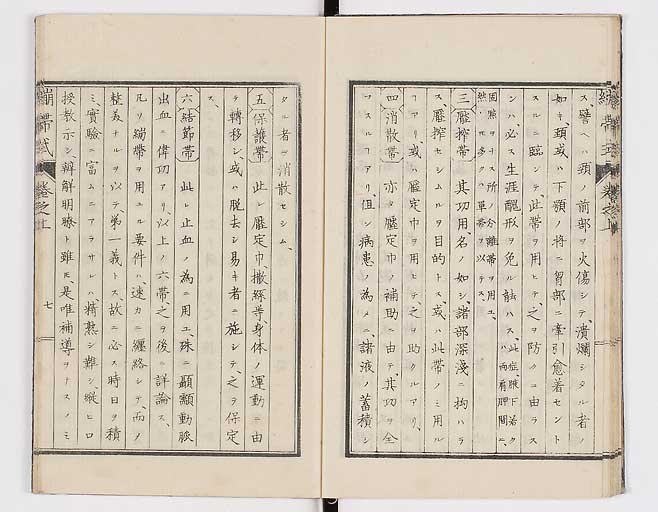 ス譬ヘハ頚ノ前部ヲ火傷シテ潰爛シタル者ノ
如キ、頚或ハ下顎ノ将ニ胷部ニ牽引愈着セント
スルニ臨シテ此帯ヲ用ヒテ、之ヲ防ク
ンハ、必ス生涯醜形ヲ免ル
此症、腋下若ク
ハ両肩胛間ニ
ヲナス所ノ分離帯ヲ用ユ
然𪜈多クハ単帯ヲ以テス、
三壓搾帯 其功用、名ノ如シ、諸部深淺ニ拘ハラ
ス、壓搾セシムルヲ目的トス、或ハ此帯ノミ用ル
アリ、或ハ壓定巾ヲ用ヒテ、之ヲ助クルアリ、
四消散帯 亦タ壓定巾ノ補助ニ由テ、其功ヲ全
フスルアリ、但シ病患ノ為メニ、諸液ノ蓄積シ
繃帯式 巻之上
タル者ヲ消散セシム、
五保護帯 此レ壓定巾、撒絲等身体ノ運動ニ由
テ轉移シ、或ハ脱去シ易キ者ニ施シテ、之ヲ保定
ス
六結節帯 此レ止血ノ為ニ用ユ、殊ニ顳顬動脈
出血ニ偉功アリ、以上ノ六帯、之ヲ後ニ詳論ス、
凡ソ繃帯ヲ用ユル要件ハ、速カニ纏絡シテ、而ノ
整美ナルヲ以テ第一義トス、故ニ必ス時日ヲ積
ミ、實驗ニ富ムニアラサレハ、精熟シ難シ、縦ヒ口
授教示シ辨解明瞭ト雖𪜈、是唯補導ヲナスノミ
繃帯式 巻之上 七